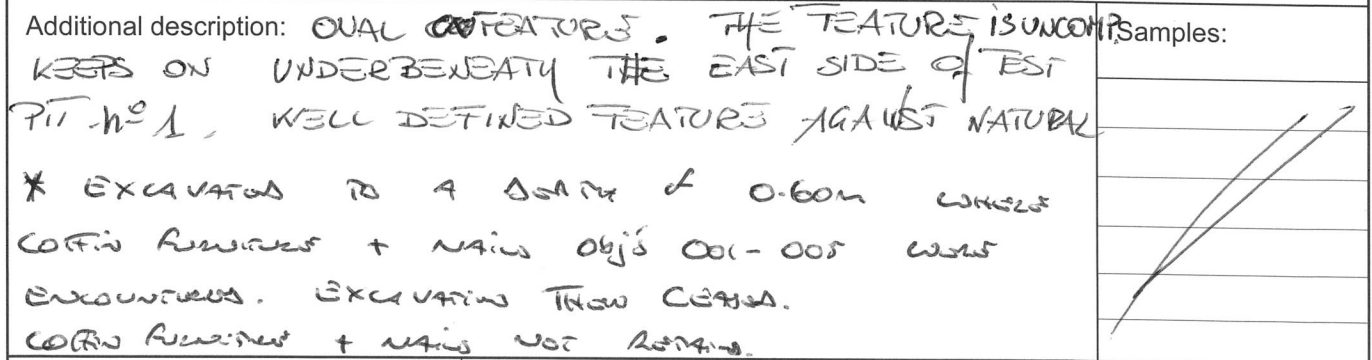 Additional description: OVAL FEATURE. THE FEATURE IS UNCOMP. Samples:
KEEPS ON UNDERBENEATH THE EAST SIDE OF TEST
PIT nº 1. WELL DEFINED FEATURE AGAINST NATURAL
* EXCAVATED TO A DEPTH of 0.60m WHERE
COFFIN FURNITURE + NAILS Obj's 001-005 WERE
ENCOUNTERED. EXCAVATION THEN CEASED.
COFFIN FURNITURE + NAILS NOT RETAINED.